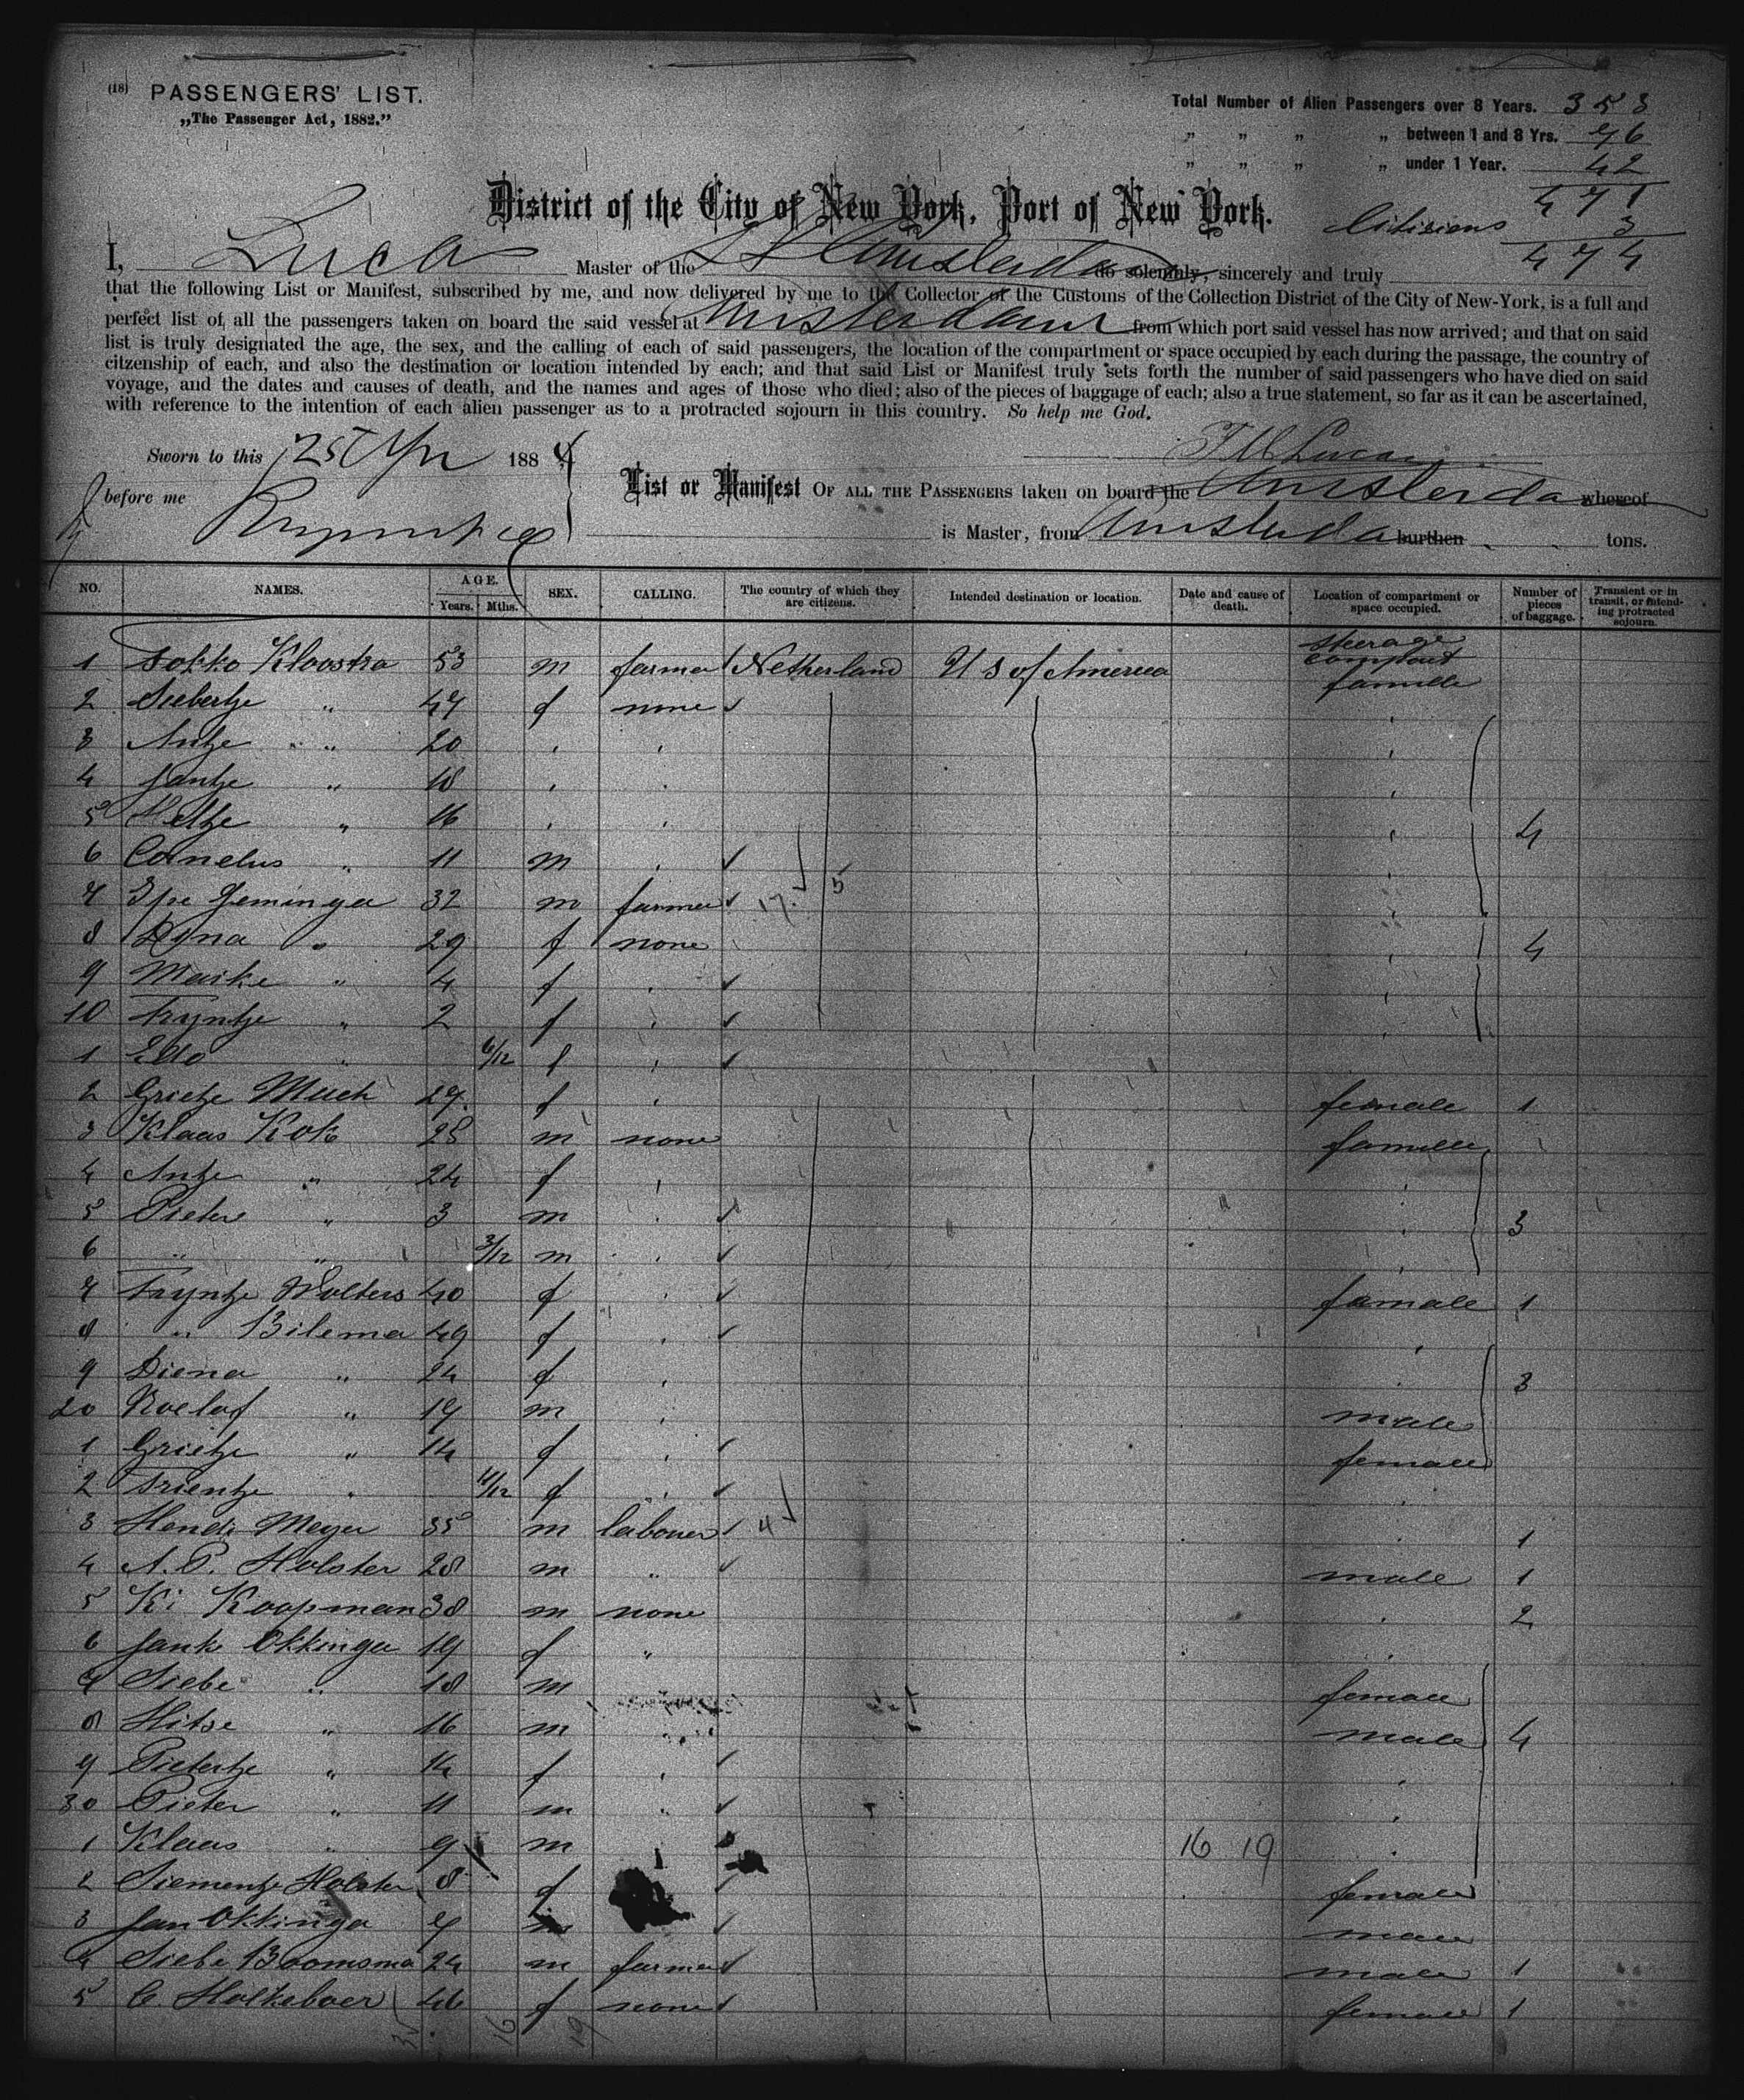 (18) PASSENGERS' LIST.
„The Passenger Act, 1882."
Total Number of Alien Passengers over 8 Years. 353
„ „ „ „ between 1 and 8 Yrs. 76
„ „ „ „ under 1 Year. 42
471
District of the City of New York, Port of New York.
Citisiens 3
474
I, Luca Master of the SS Amsterdam do solemnly, sincerely and truly
that the following List or Manifest, subscribed by me, and now delivered by me to the Collector of the Customs of the Collection District of the City of New-York, is a full and
perfect list of all the passengers taken on board the said vessel at Amsterdam from which port said vessel has now arrived; and that on said
list is truly designated the age, the sex, and the calling of each of said passengers, the location of the compartment or space occupied by each during the passage, the country of
citzenship of each, and also the destination or location intended by each; and that said List or Manifest truly sets forth the number of said passengers who have died on said
voyage, and the dates and causes of death, and the names and ages of those who died; also of the pieces of baggage of each; also a true statement, so far as it can be ascertained,
with reference to the intention of each alien passenger as to a protracted sojourn in this country. So help me God.
Sworn to this 25 Apr 1884
before me
List or Manifest OF ALL THE PASSENGERS taken on board the Amsterda whereof
is Master, from Amsterda burthen tons.
NO. NAMES. AGE. Years. Mths. SEX. CALLING. The country of which they are citizens. Intended destination or location. Date and cause of death. Location of compartment or space occupied. Number of pieces of baggage. Transient or in transit, or intending protracted sojourn.
1 Sokko Kloostra 53 m farmer Netherland U S of America steerage compout famille
2 Siebertje „ 47 f none
3 Antje „ 20
4 Jantje „ 18
5 Jeltje „ 16 4
6 Cornelus „ 11 m
7 Ype Jeminga 32 m farmer 17 5
8 Dyna „ 29 f none 4
9 Maike „ 4 f
10 Tryntje „ 2 f
1 Edo „ 6/12 f
2 Grietje Much 27 f female 1
3 Klaas Kok 28 m none famille
4 Antje „ 24 f
5 Pieter „ 3 m 3
6 „ „ 3/12 m
7 Tryntje Wolters 40 f famale 1
8 „ Bilema 49 f
9 Diena „ 24 f 3
20 Roelof „ 19 m male
1 Grietje „ 14 f female
2 Trientje „ 11/12 f
3 Hendr Meyer 35 m labouer 4 1
4 A. P. Holster 28 m „ male 1
5 Ki Koopman 38 m none 2
6 Janke Okkinga 19 f „
7 Siebe „ 18 m female
8 Hitse „ 16 m male 4
9 Pietertje „ 14 f
30 Pieter „ 11 m „
1 Klaas „ 9 m 16 19
2 Siementje Holster 8 f female
3 Jan Okkinga 7 m male
4 Siebe Boomsma 24 m farmer male 1
5 C. Holkeboer 46 f none female 1
35 16 19